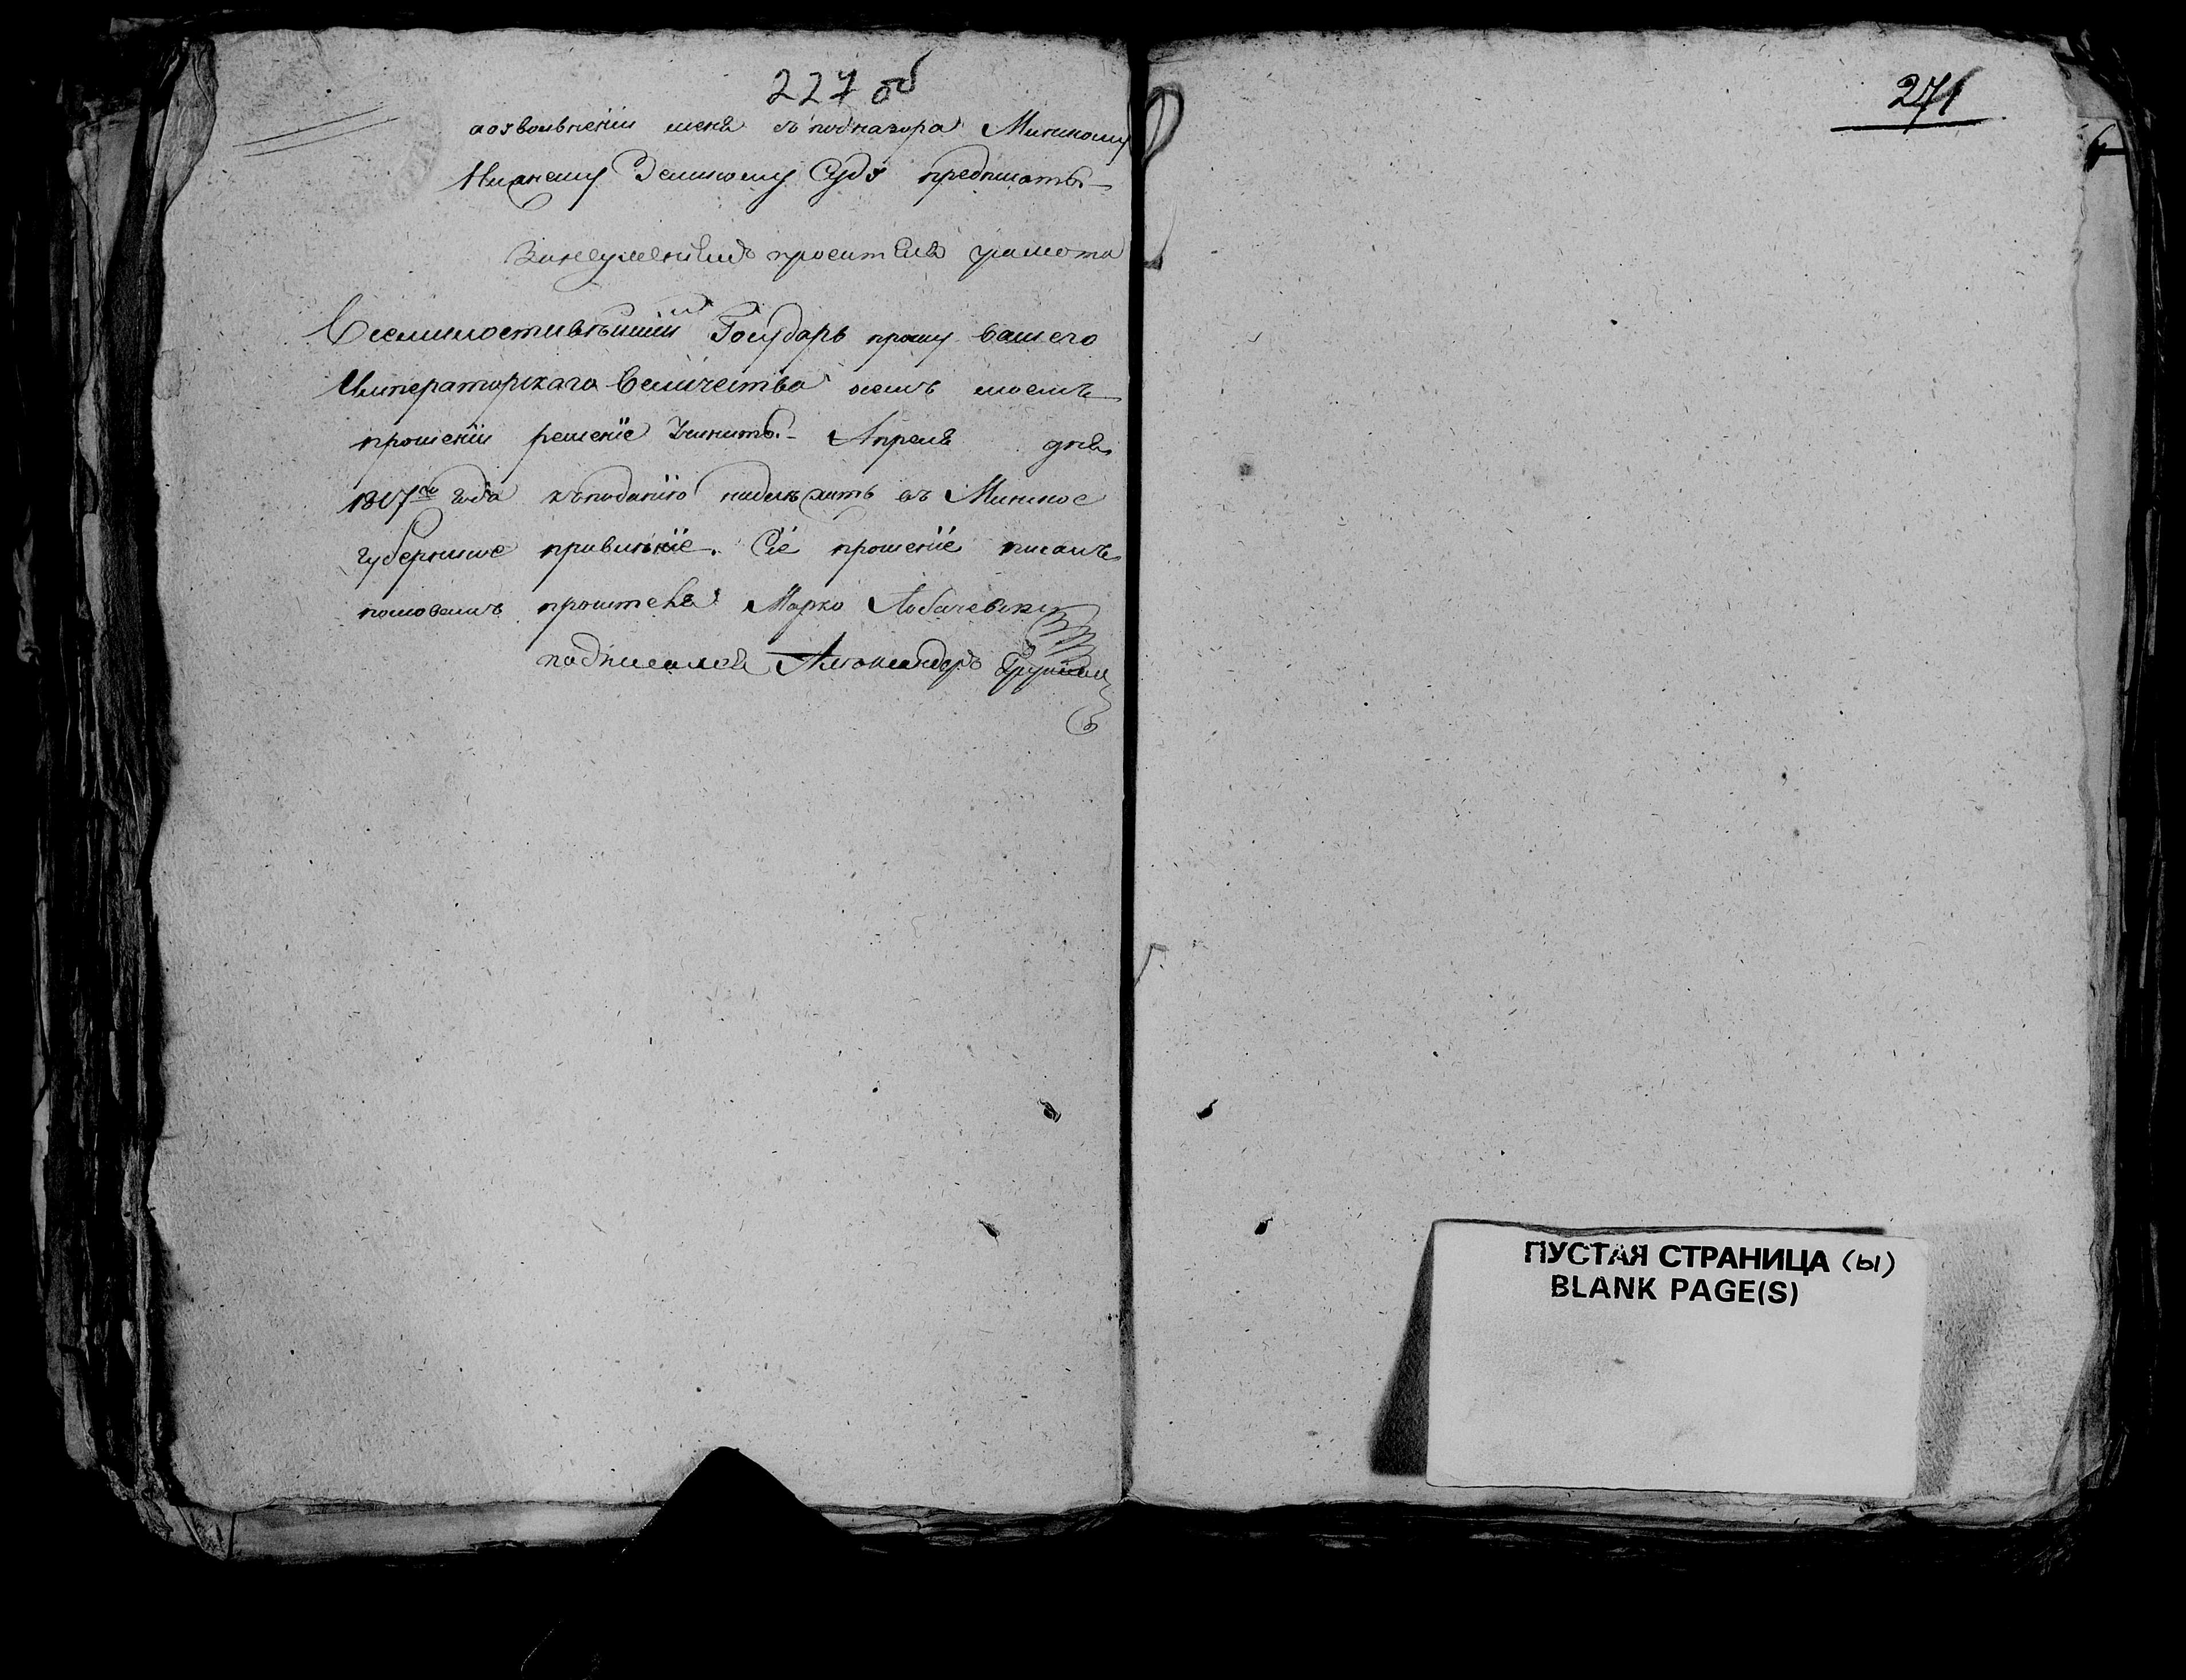 227 об
аозволвнении меня съ подназора Минскому
Нижнему Земскому Суду предписать
Занеумениемъ просителя грамоте
Всемилостивѣйшій Государь прошу вашего
Императорскаго Величества осемъ моемъ
прошеніи решеніе Учинить. Апреля дня
1807го года къподанію надлѣжить въ Минское
губернское правленіе. Сіе прошеніе писалъ
пословамъ просителя Марко Лобачевски
подписался Александръ
271
ПУСТАЯ СТРАНИЦА (Ы)
BLANK PAGE(S)